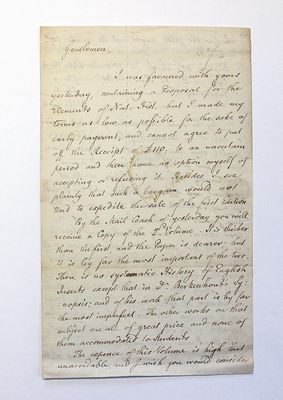 Gentlemen,
I was favoured with yours
yesterday, containing a Proposal for the
Elements of Nat. Hist. but I made my
terms as low as possible for the sake of
early payment, and cannot agree to put
off the Receipt of £110. to an uncertain
period and then have no option myself of
accepting or refusing it. Besides I see
plainly that such a bargain would not
tend to expedite the sale of the first Edition
By the Mail Coach of yesterday you will
receive a Copy of the 2d Volume. It is thicker
than the first and the Paper is dearer; but
it is by far the most important of the two.
There is no systematic History of English
Insects except that in Dr. Berkenhout's Sy:
:nopsis; and of his work that part is by far
the most imperfect. The other works on that
subject are all of great price and none of
them accommodated to Students
The expence of this Volume is high but
unavoidable, and I wish you would consider